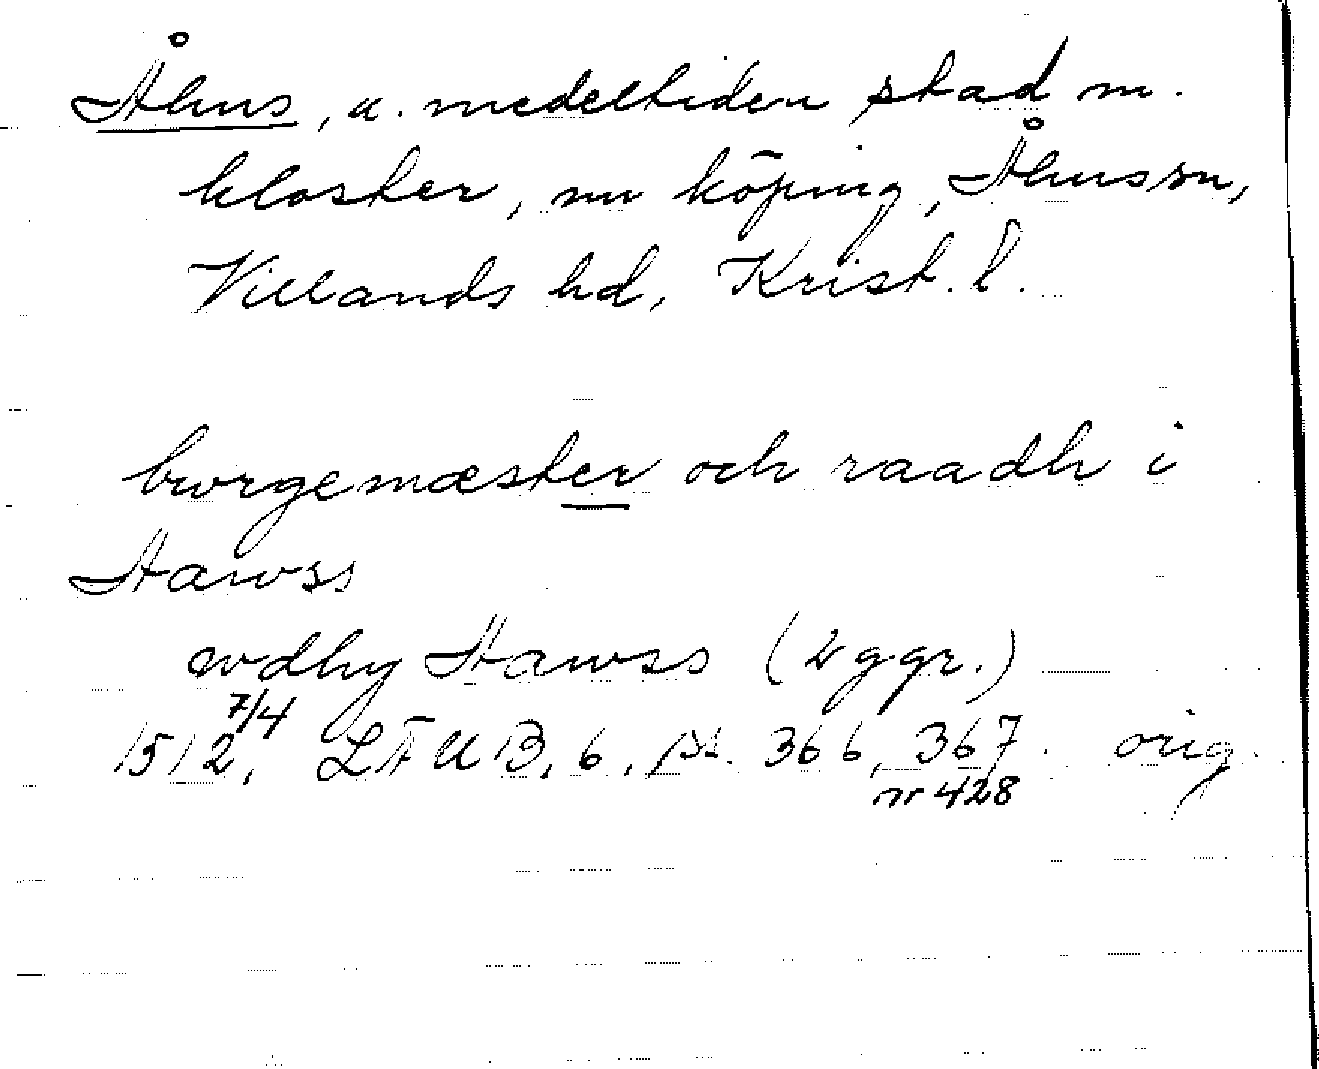 Åhus, u. medeltiden stad m.
kloster, nu köping, Åhus sn,
Villands hd, Krist. l.
bwrgemæster och raadh i
Aawss
wdhy Aawss (2 ggr.)
1512 7/4, LÄUB, 6, ps. 366, 367. orig.
nr 428